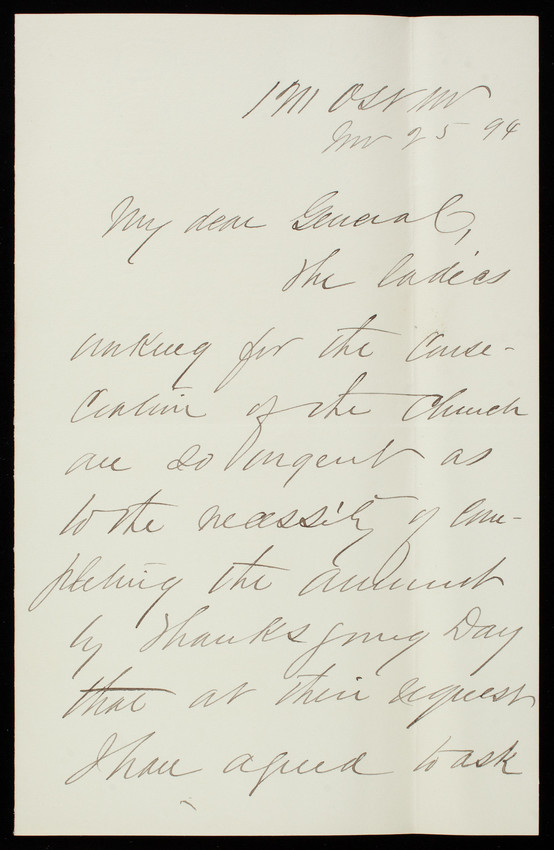 1711 O St NW
Nov 25 94
My dear General,
The ladies
working for the Conse-
cration of the Church
are so urgent as
to the necessity of com-
pleting the amount
by Thanksgiving Day
that at their request
I have agreed to ask